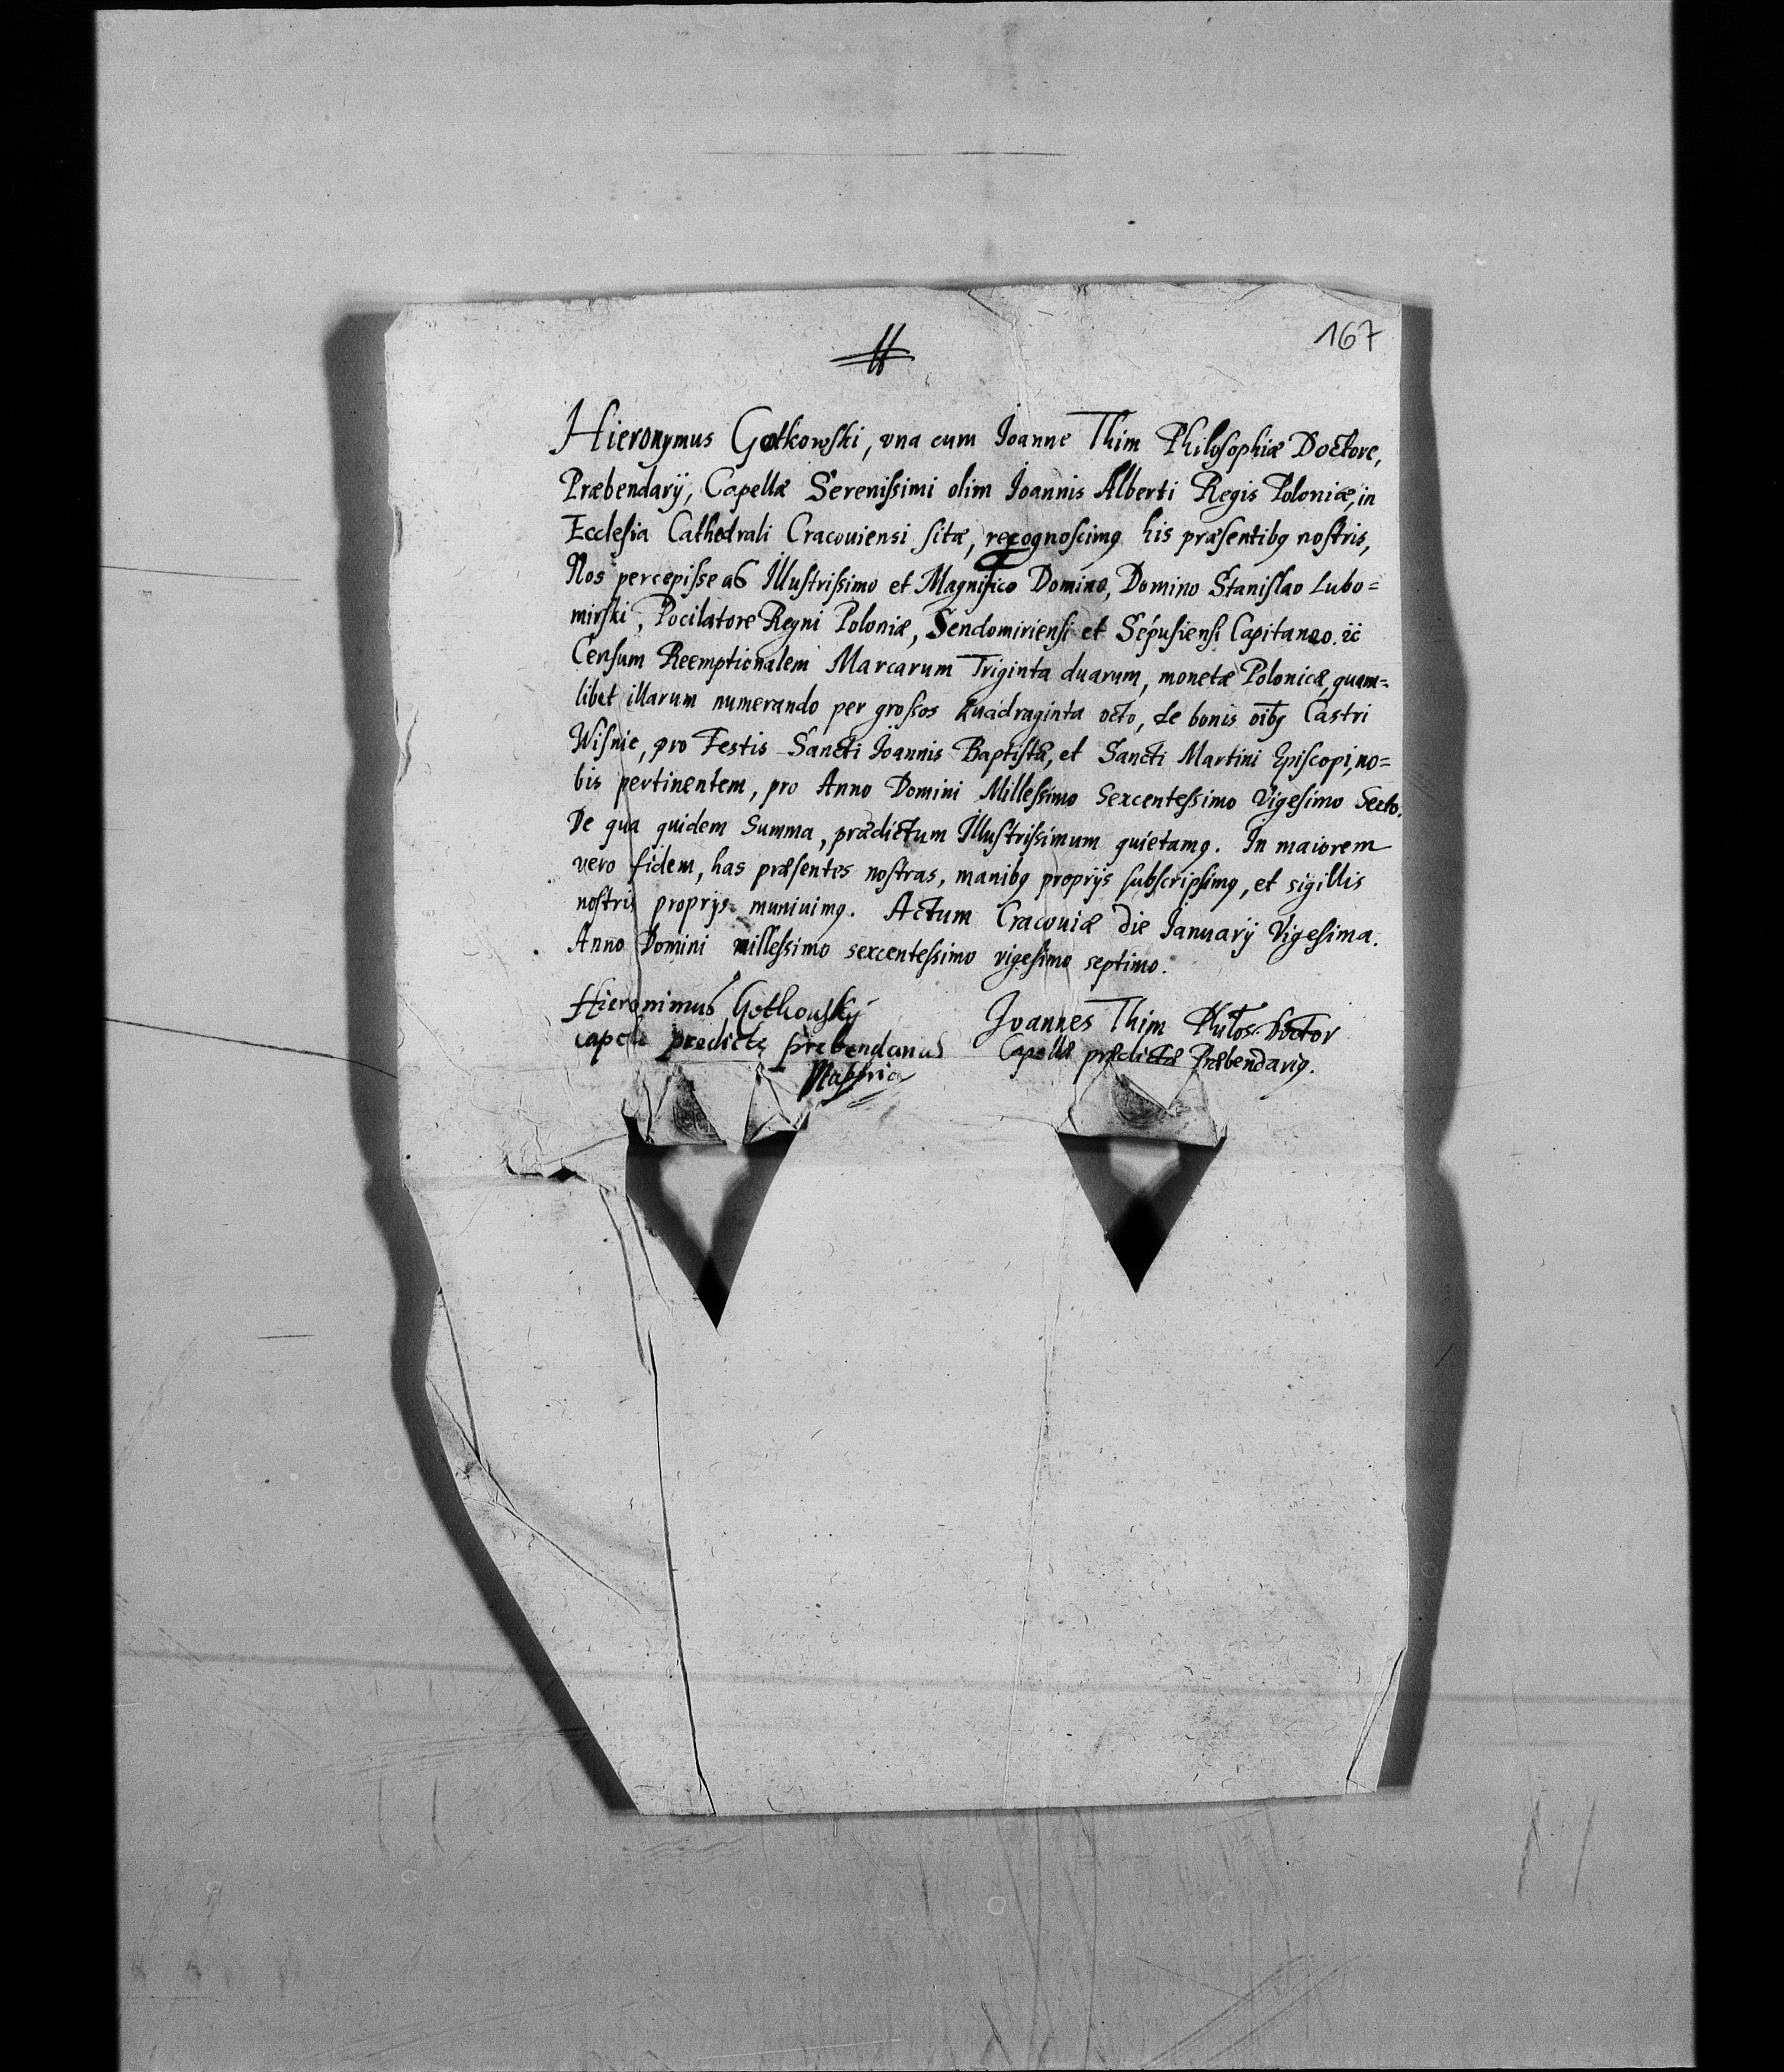 167
Hieronymus Gotkowski, vna cum Ioanne Thim Philosophiæ Doctore,
Præbendarij, Capellæ Serenissimi olim Ioannis Alberti Regis Poloniæ, in
Ecclesia Cathedrali Cracouiensi sitæ, recognoscimꝰ his præsentibꝰ nostris,
Nos percepisse ab Illustrissimo et Magnifico Domino, Domino Stanislao Lubo=
mirski, Pocilatore Regni Poloniæ, Sendomiriensi et Sépusiensi Capitaneo. ꝛc
Censum Reemptionalem Marcarum Triginta duarum, monetæ Polonicæ, quam=
libet illarum numerando per grossos quadraginta octo, de bonis oībꝰ Castri
Wisnie, pro Festis Sancti Ioannis Baptistæ, et Sancti Martini Episcopi, no=
bis pertinentem, pro Anno Domini Millessimo Sexcentessimo Vigesimo Sexto.
De qua quidem Summa, prædictum Illustrissimum quietamꝰ. In maiorem
vero fidem, has præsentes nostras, manibꝰ proprijs subscripsimꝰ, et sigillis
nostris proprijs muniuimꝰ. Actum Cracouiæ die Ianuarij Vigesima.
Anno Domini millessimo sexcentessimo vigesimo septimo.
Hieronimus Gotkowsky
capelę predictę prebendarius
Mappria
Joannes Thim Philos: Doctor
Capellæ prædictæ Præbendariꝰ.